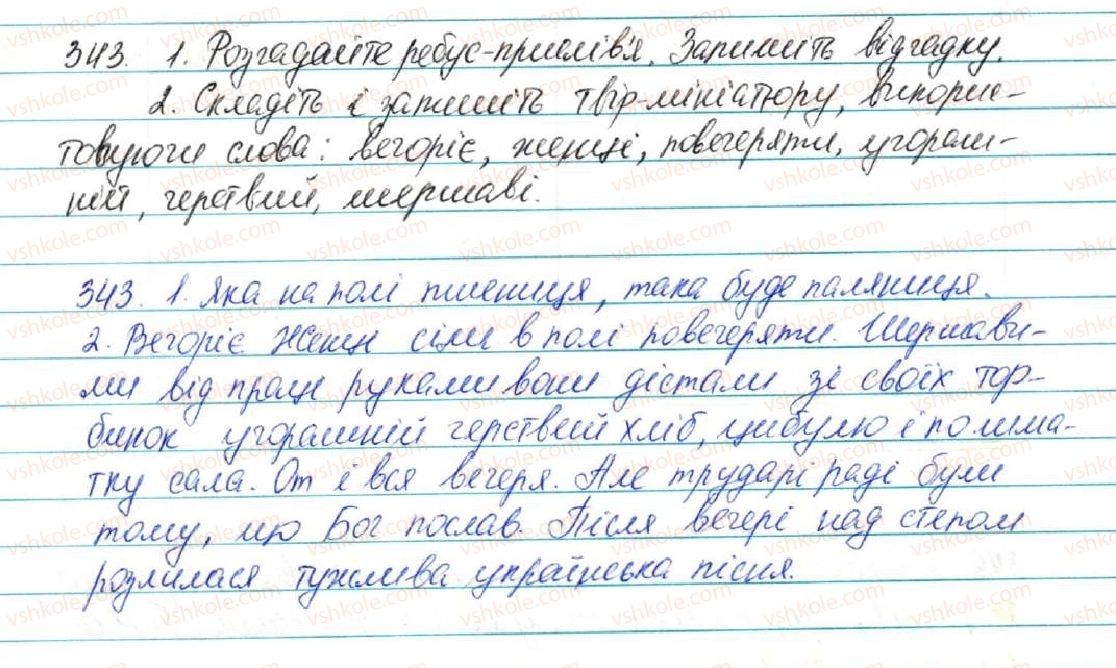 343. 1. Розгадайте ребус-прислів'я. Запишіть відгадку.
2. Складіть і запишіть твір-мініатюру, викорис-
товуючи слова: вечоріє, женці, повечеряти, учораш-
ній, черствий, шершаві.
343. 1. Яка на полі пшениця, така буде паляниця.
2. Вечоріє. Женці сіли в полі повечеряти. Шершави-
ми від праці руками вони дістали зі своїх тор-
бинок учорашній черствий хліб, цибулю і по шма-
тку сала. От і вся вечеря. Але трударі раді були
тому, що Бог послав. Після вечері над степом
розлилася тужлива українська пісня.